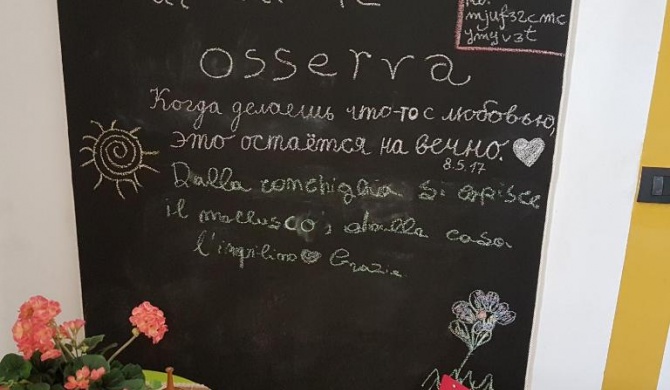 mjuf32cmc
ymyv3t
osserva
Когда делаешь что-то с любовью,
это остаётся на вечно.
8.5.17
Dalla conchiglia si capisce
il mollusco, dalla casa
l'inquilino Grazie